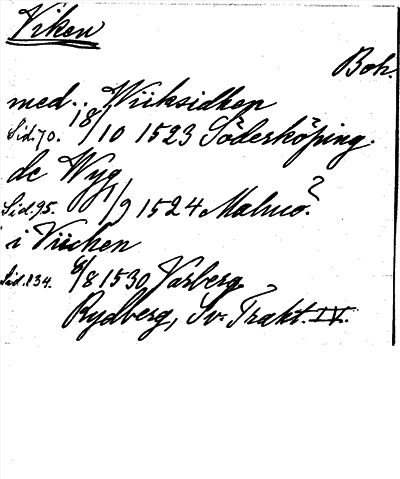 Viken
Boh.
med.. Wiiksidhen
Sid. 70. 18/10 1523 Söderköping.
de Wyg
Sid. 95. 1/9 1524 Malmö?
i Viichen
Sid. 134. 6/8 1530 Varberg
Rydberg, Sv. Trakt. IV.